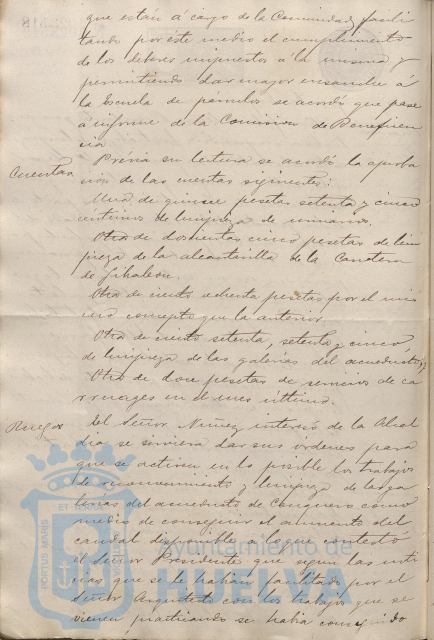 que están á cargo de la Comunidad, facili
tando por éste medio el cumplimiento
de los deberes impuestos á la misma y
permitiendo dar mayor ensanche á
la Escuela de párvulos se acordó que pase
á informe de la Comision de Beneficen
cia
Cuentas
Prévia su lectura se acordó la aproba
cion de las cuentas siguientes:
Una de quince pesetas setenta y cinco
centimos de limpieza de urinarios.
Otra de doscientas cinco pesetas de lim
pieza de la alcantarilla de la Carretera
de Gibraleon.
Otra de ciento ochenta pesetas por el mis
mo concepto que la anterior.
Otra de ciento setenta, setenta y cinco
de limpieza de las galerias del acueducto, y
Otra de doce pesetas de
carruages en el mes último.
Ruegos
El Señor Nuñez interesó de la Alcal
dia se sirviera dar sus órdenes para
que se activen en lo posible los trabajos
de reconocimiento y limpieza de las ga
lerias del acueducto de Conquero como
medio de conseguir el aumento del
caudal disponible a lo que contestó
el Señor Presidente que segun las noti
cias que se le habian facilitado por el
Señor Arquitecto con los trabajos que se
vienen practicando se habia conseguido
PORTUS MARIS ET TERRAE
Ayuntamiento de
HUELVA